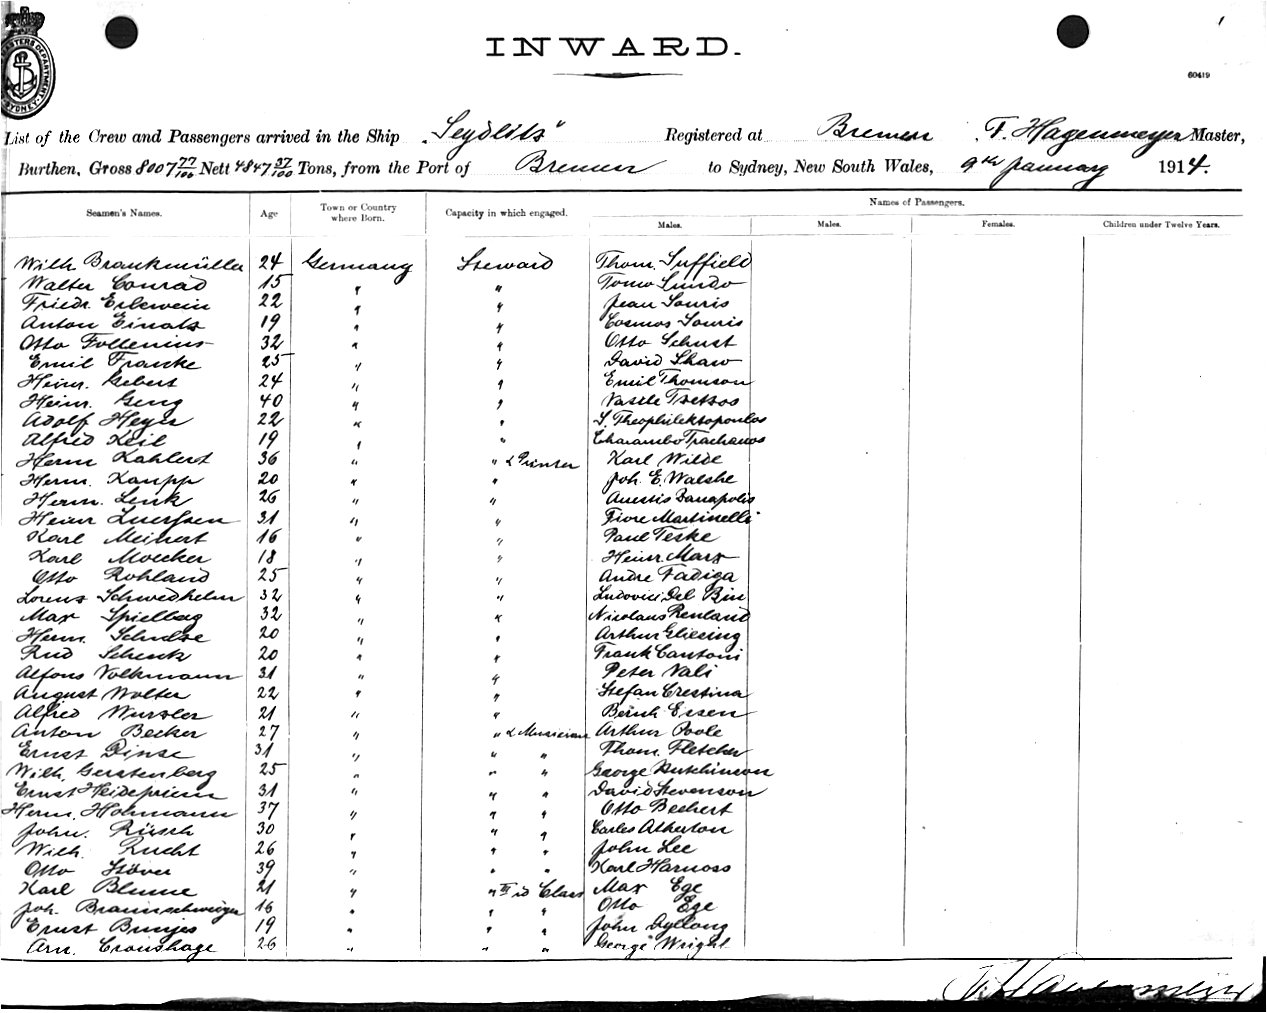 INWARD.
60419
MASTERS DEPARTMENT SYDNEY
List of the Crew and Passengers arrived in the Ship "Seydlitz" Registered at Bremen F. Hagenmeyer Master,
Burthen, Gross 8007 77/100 Nett 4847 37/100 Tons, from the Port of Bremen to Sydney, New South Wales, 9th January 1914.
Seamen's Names. Age Town or Country where Born. Capacity in which engaged. Names of Passengers.
Males. Males. Females. Children under Twelve Years.
Wilh. Brankmüller 24 Germany Steward Thom. Suffield
Walter Conrad 15 " " Tomo Sundo
Friedr. Erlewein 22 " " Jean Souris
Anton Einats 19 " " Cosmos Souris
Otto Follenius 32 " " Otto Schust
Emil Franke 25 " " David Shaw
Heinr. Gebert 24 " " Emil Thomson
Heinr. Geng 40 " " Vasile Tsetsos
Adolf Heyer 22 " " S. Theophilektopoulos
Alfred Keil 19 " " Charambo Trachanos
Herm Kahlert 36 " " & Printer Karl Wilde
Herm. Kaupp 20 " " Joh. E. Walshe
Herm. Lenk 26 " " Anestis Danapolis
Heinr Luerssen 31 " " Fiore Martinelli
Karl Meinert 16 " " Paul Teske
Karl Moecker 18 " " Heinr. Marx
Otto Rohland 25 " " Andre Fadiga
Lorenz Schwedhelm 32 " " Ludovici Del Bin
Max Spielbag 32 " " Nicolaus Renland
Herm. Schulze 20 " " Arthur Gliesing
Rud Schenk 20 " " Frank Cantoni
Alfons Volkmann 31 " " Peter Vali
August Wolter 22 " " Stefan Crestina
Alfred Wurzler 21 " " Bernh Essen
Anton Becker 27 " " & Musician Arthur Poole
Ernst Dinse 31 " " " Thom. Fletcher
Wilh. Gerstenberg 25 " " " George Hutchinson
Ernst Heidepriem 31 " " " David Stevenson
Herm. Hohmann 37 " " " Otto Bechert
John. Rüsch 30 " " " Carles Atherton
Wilh. Rucht 26 " " " John Lee
Otto Stöver 39 " " " Karl Harnoss
Karl Blume 21 " " IIId Class Max Ege
Joh. Braunschweiger 16 " " " Otto Ege
Ernst Bunjes 19 " " " John Dyllong
Arn. Cronshage 26 " " " George Wright
F. Hagenmeyer